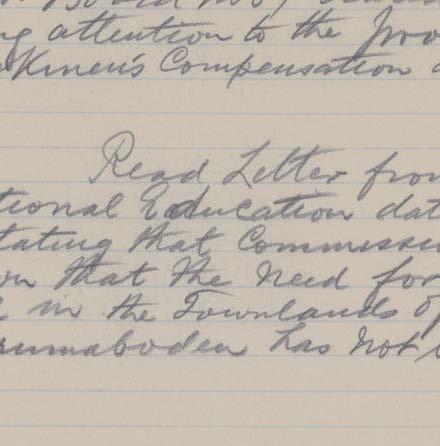 ng attention to the Prov
kmen's Compensation a
Read Letter from
tional Education dat
tating that Commissi
on that the need for
in the Townlands of
rumaboden has not